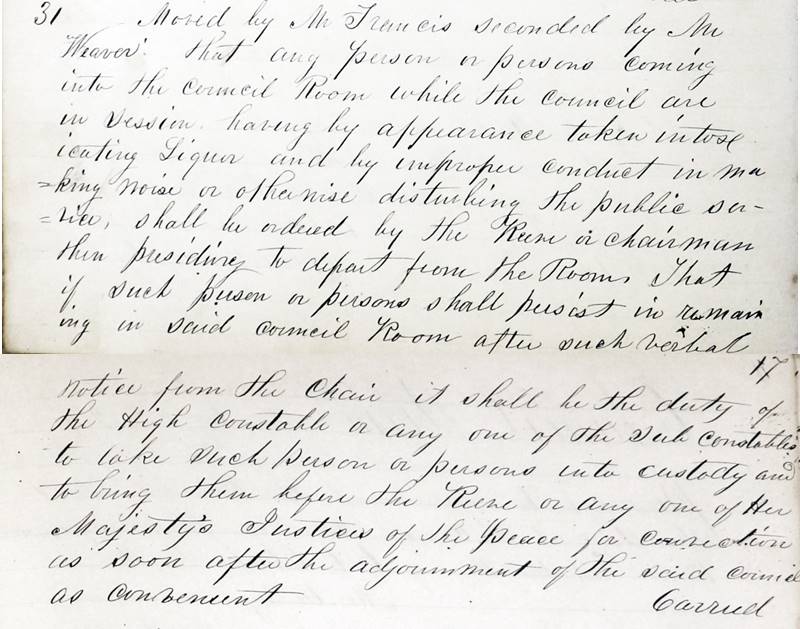 31 Moved by Mr Francis seconded by Mr
Weaver. That any person or persons coming
into the council Room while the council are
in session. having by appearance taken intox
icating Liquor and by improper conduct in ma
=king noise or otherwise disturbing the public ser-
=vice, shall be ordered by the Reeve or chairman
then presiding to depart from the Room, That
if such person or persons shall persist in remain
ing in said council Room after such verbal
17
notice from the Chair it shall be the duty of
the High Constable or any one of the Sub Constables
to take such person or persons into custody and
to bring them before the Reeve or any one of Her
Majesty's Justices of the Peace for conviction
as soon after the adjournment of the said council
as convenient Carried